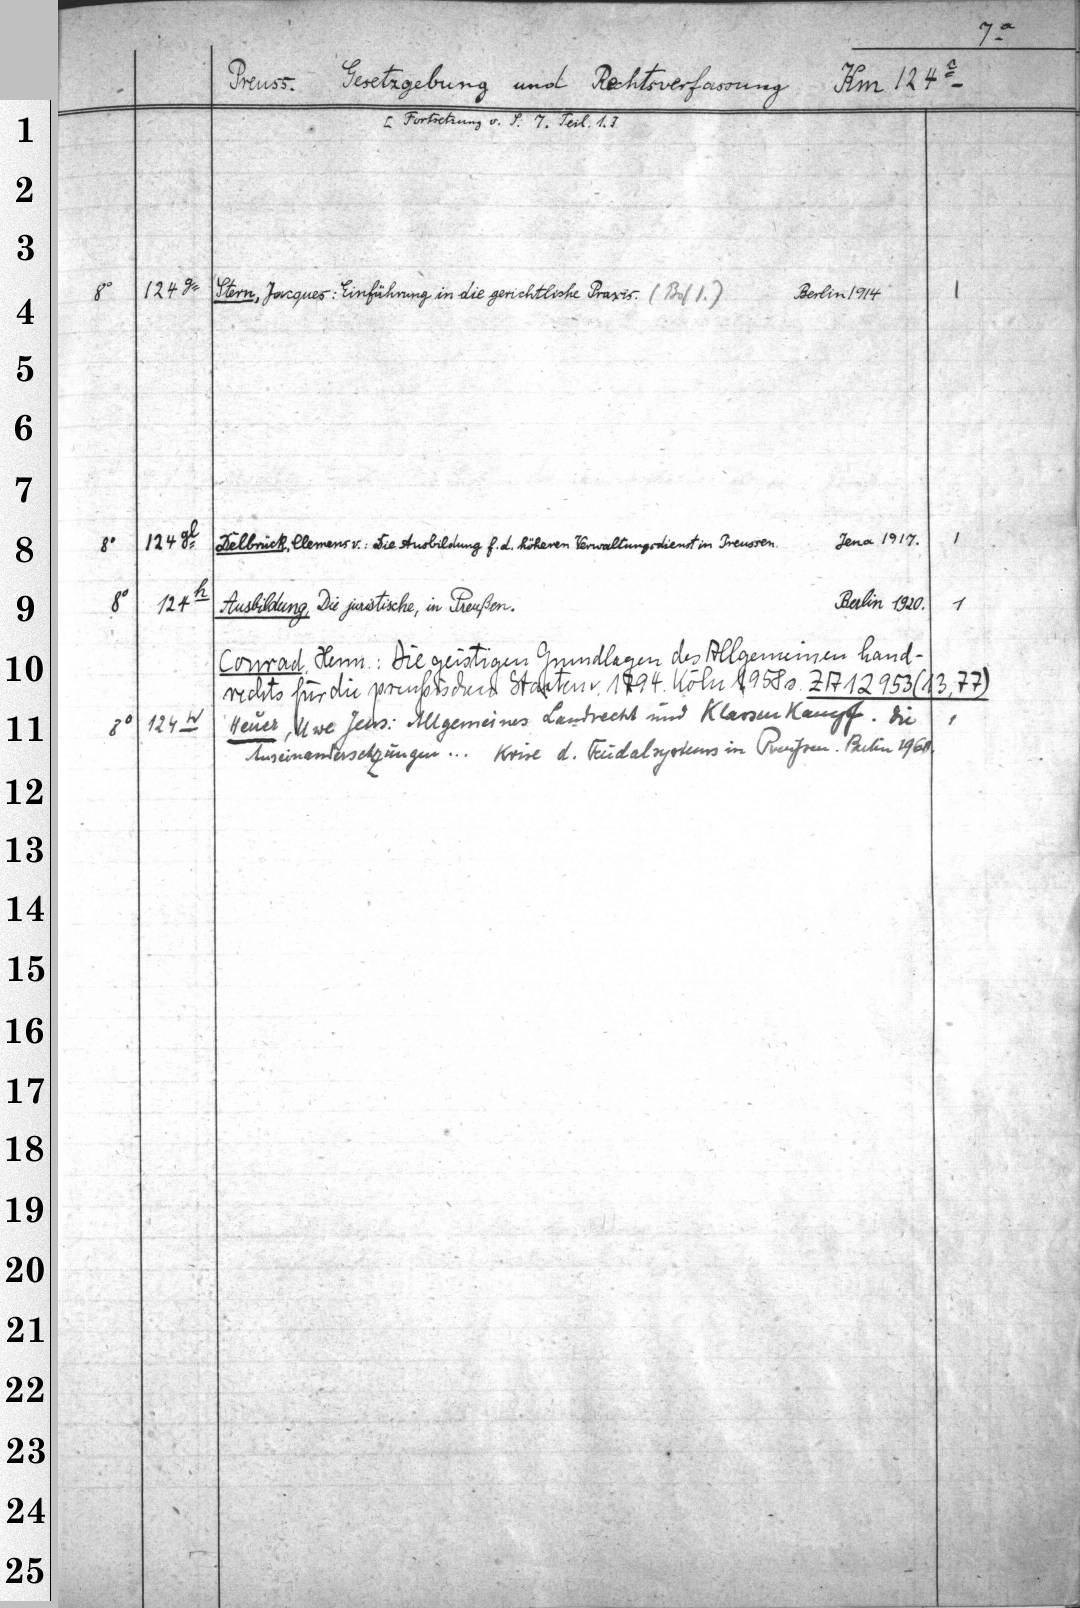 7a
Preuss. Gesetzgebung und Rechtsverfassung Km 124a
[Fortsetzung v. S. 7. Teil. 1.]
1
2
3
8° 124 g Stern, Jacques: Einführung in die gerichtliche Praxis. (Bd 1.) Berlin 1914 1
4
5
6
7
8 8° 124 gl Delbrück, Clemens v.: Die Ausbildung f. d. höheren Verwaltungsdienst in Preussen. Jena 1917. 1
9 8° 124 h Ausbildung, Die juristische, in Preußen. Berlin 1920. 1
10 Conrad, Herm.: Die geistigen Grundlagen des Allgemeinen Land-
rechts für die preußischen Staaten v. 1794. Köln 1958. ZA 12953(13,77)
11 8° 124 w Heuer, Uwe Jens: Allgemeines Landrecht und Klassenkampf. Die 1
Auseinandersetzungen ... Krise d. Feudalsystems in Preußen. Berlin 1960.
12
13
14
15
16
17
18
19
20
21
22
23
24
25